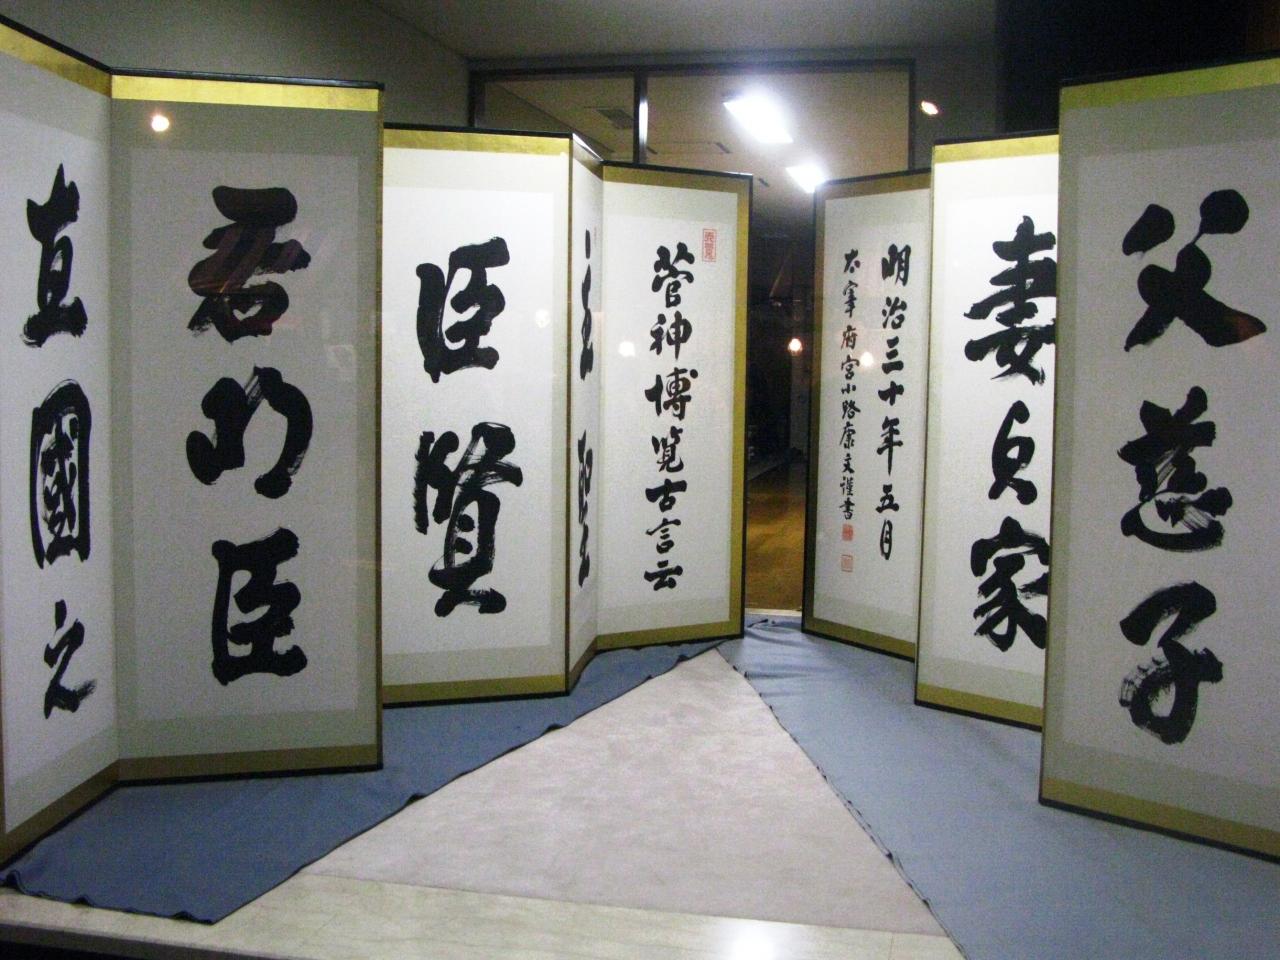 菅神博覧古言云
主聖
臣賢
君明臣
直國之
父慈子
妻貞家
明治三十年五月
太宰府宮小路康文謹書